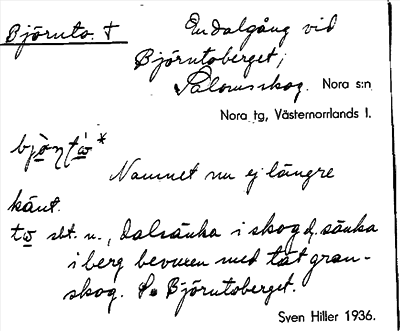 Björnto. † En dalgång vid
Björntoberget,
Salomsskog. Nora s:n
Nora tg, Västernorrlands l.
Namnet nu ej längre
känt.
slt. n., dalsänka i skog el. sänka
i berg bevuxen med tät gran-
skog. Se Björntoberget.
Sven Hiller 1936.